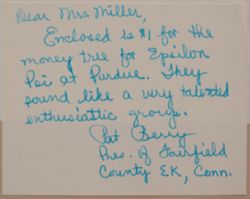 Dear Mrs Miller,
Enclosed is $1 for the
money tree for Epsilon
Psi at Purdue. They
sound like a very talented
enthusiattic group.
Pat Berry
Pres. of Fairfield
County EK, Conn.